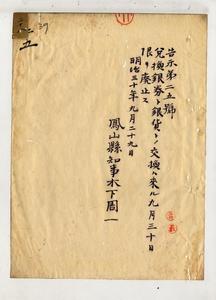 告示第二五號
兌換銀券ト銀貨トノ交換ハ來ル九月三十日
限リ廢止ス
明治三十年九月二十九日
鳳山縣知事木下周一